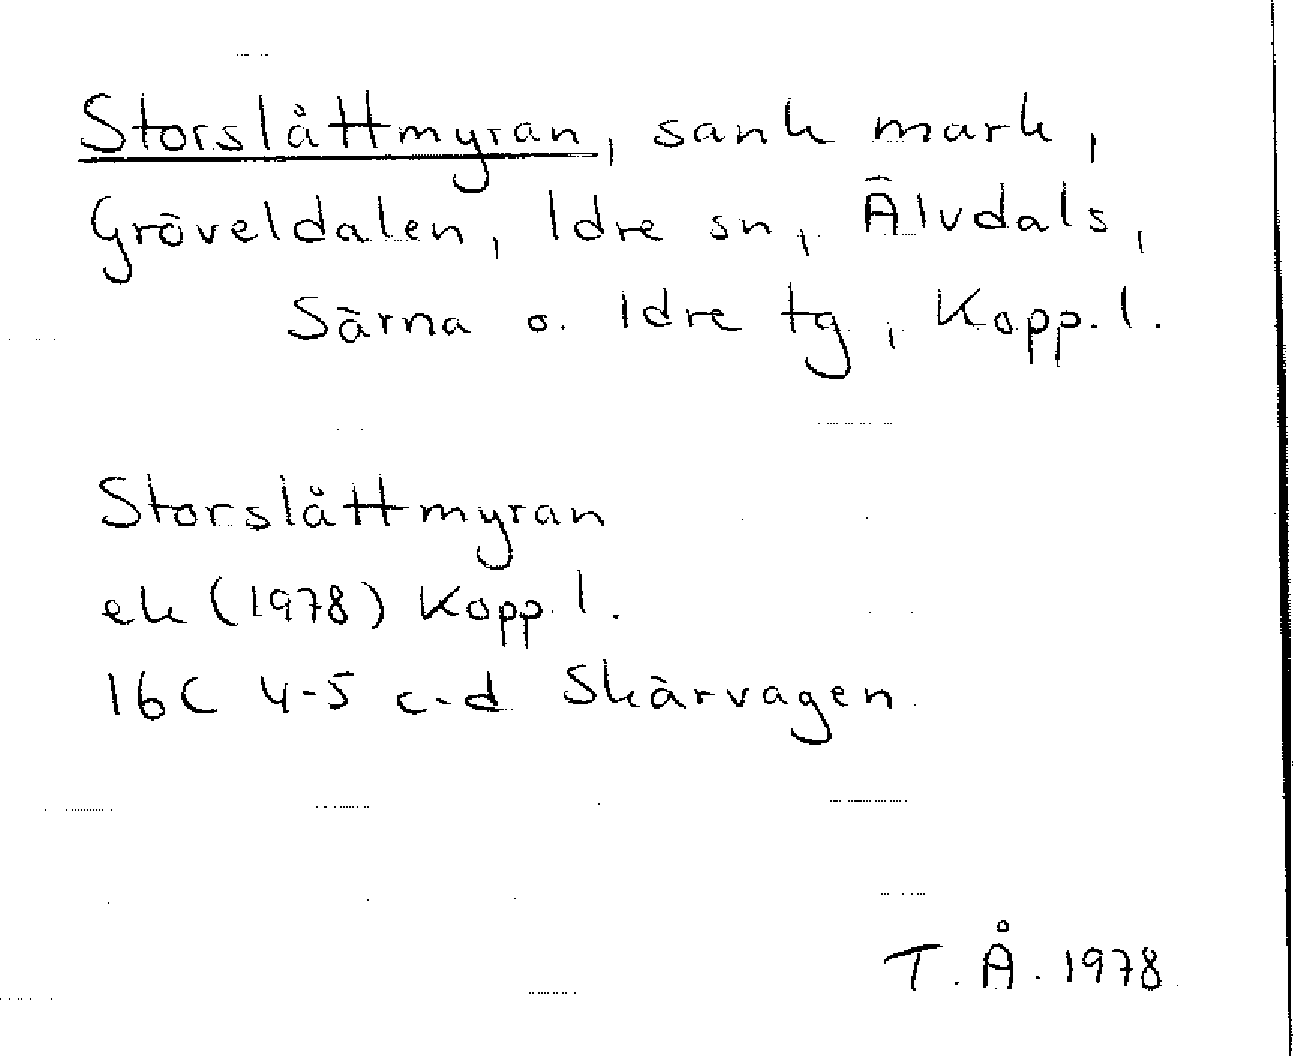 Storslåttmyran, sank mark,
Gröveldalen, Idre sn, Älvdals,
Särna o. Idre tg, Kopp. l.
Storslåttmyran
ek (1978) Kopp. l.
16C 4-5 c-d Skärvagen
T. Å. 1978